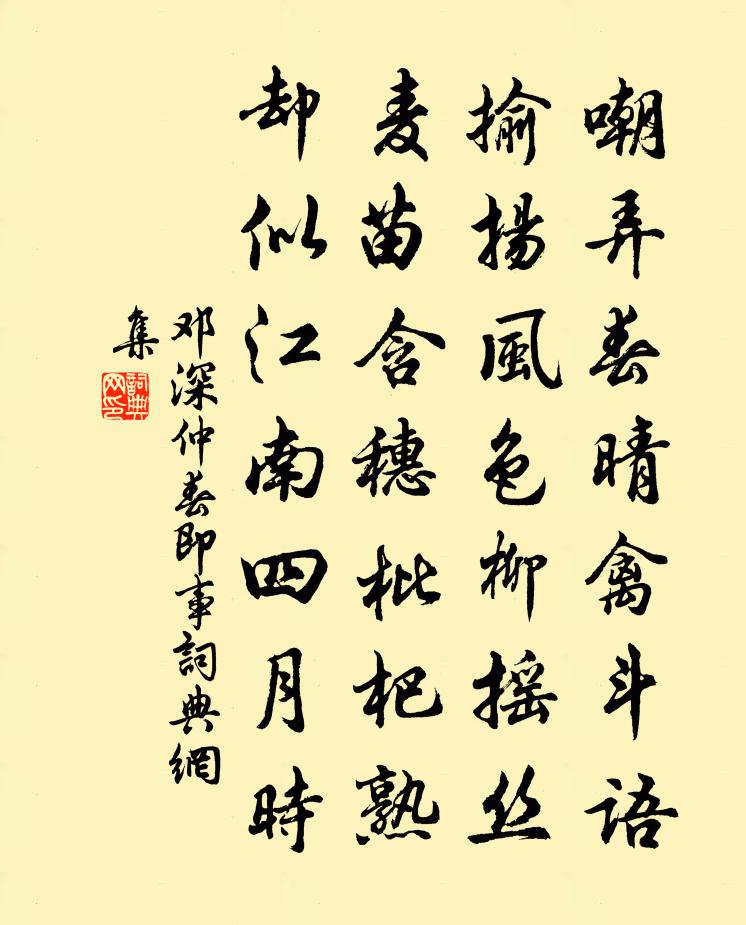 嘲弄春晴禽斗语
揄揚風色柳摇丝
麦苗含穗枇杷熟
却似江南四月時
邓深仲春即事詞典網
集
詞典網印